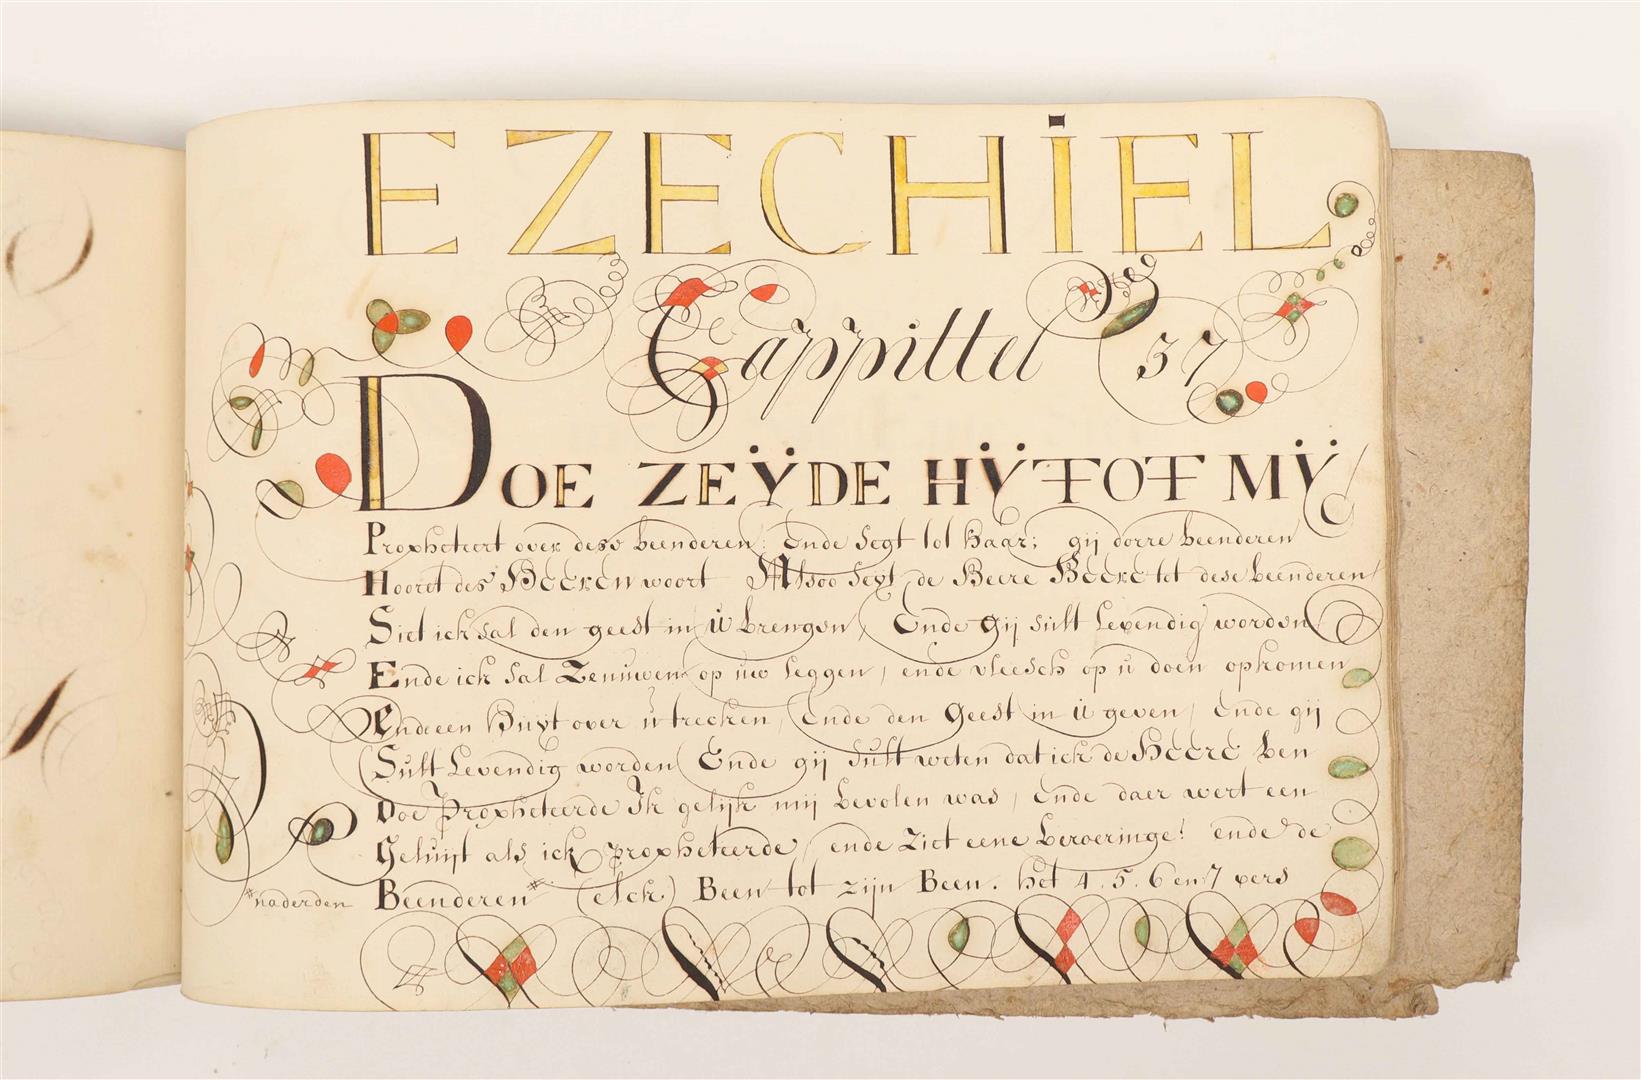 EZECHIEL
Cappittel 37
DOE ZEŸDE HŸ TOT MŸ
Propheteert over dese beenderen: Ende segt tot haar; gij dorre beenderen
Hooret des HEEREN woort Alsoo seyt de Heere HEERE tot dese beenderen
Siet ick sal den geest in ü brengen, Ende gij sült Levendig worden
Ende ick sal Zenuwen op uw leggen, ende vleesch op u doen opkomen
Ende een Huyt over ü trecken, Ende den Geest in ü geven, Ende gij
Sult Levendig worden Ende gij sult weten dat ick de HEERE ben
Doe Propheteerde Ik gelijk mij bevolen was, Ende daer wert een
Geluijt als ick propheteerde, ende ziet eene beroeringe! ende de
Beenderen # (elck) Been tot zijn Been. het 4. 5. 6 en 7 vers
# naderden